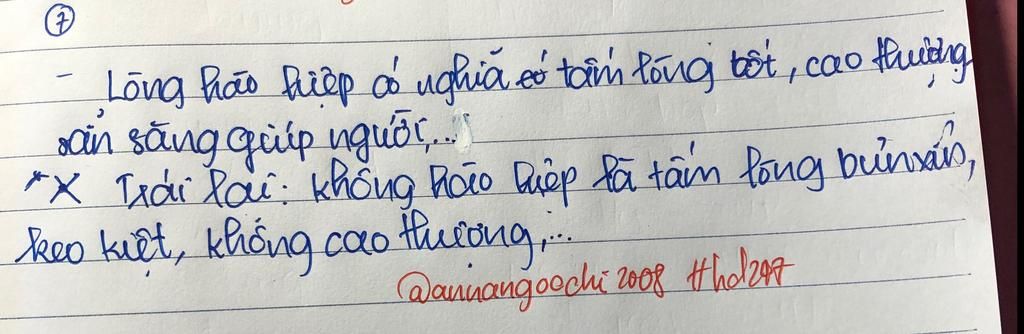 7
- Lòng hào hiệp có nghĩa có tấm lòng tốt, cao thượng
sẵn sàng giúp người,...
*X Trái lại: không hào hiệp là tấm lòng bủn xỉn,
keo kiệt, không cao thượng,...
@anuangoochi2008 #hd247